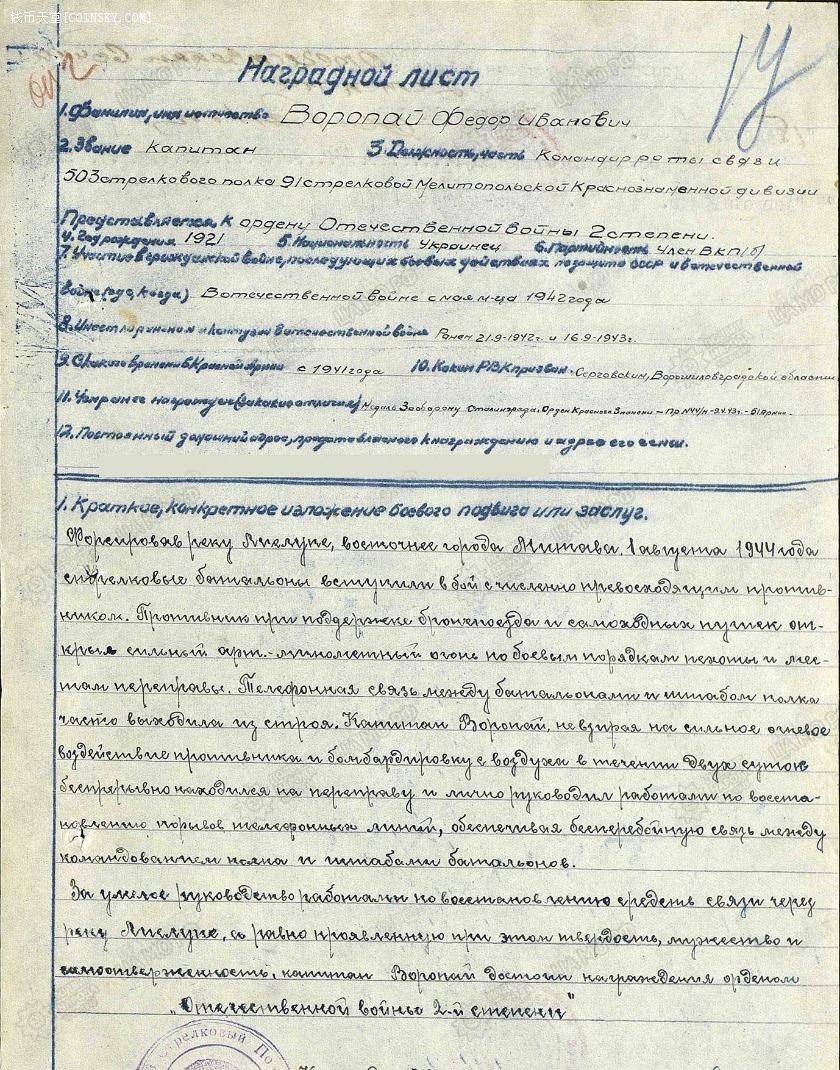 钱币天堂[COINSKY.COM]
Наградной лист
1. Фамилия, имя и отчество Воропай Федор Иванович
2. Звание капитан 3. Должность, часть Командир роты связи
503 стрелкового полка 91 стрелковой Мелитопольской Краснознаменной дивизии
Представляется к ордену Отечественной войны 2 степени.
4. Год рождения 1921 5. Национальность Украинец 6. Партийность Член ВКП(б)
7. Участие в гражданской войне, последующих боевых действиях по защите СССР и в отечественной
войне (где, когда) В отечественной войне с мая м-ца 1942 года
8. Имеет ли ранения и контузии в отечественной войне Ранен 21.9-1942г. и 16.9-1943г.
9. С какого времени в Красной Армии с 1941 года 10. Каким РВК призван. Серговским, Ворошиловградской области
11. Чем ранее награжден (за какие отличия) Медаль За оборону Сталинграда. Орден Красного Знамени –
12. Постоянный домашний адрес, представляемого к награждению и адрес его семьи.
1. Краткое, конкретное изложение боевого подвига или заслуг.
Форсировав реку Лиелупе, восточнее города Митава, 1 августа 1944 года
стрелковые батальоны вступили в бой с численно превосходящим против-
ником. Противник при поддержке бронепоезда и самоходных пушек от-
крыл сильный арт.-минометный огонь по боевым порядкам пехоты и мес-
там переправы. Телефонная связь между батальонами и штабом полка
часто выходила из строя. Капитан Воропай, не взирая на сильное огневое
воздействие противника и бомбардировку с воздуха в течении двух суток
беспрерывно находился на переправу и лично руководил работами по восста-
новлению порывов телефонных линий, обеспечивая бесперебойную связь между
командованием полка и штабами батальонов.
За умелое руководство работами по восстановлению средств связи через
реку Лиелупе, со равно проявленную при этом твердость, мужество и
самоотверженность, капитан Воропай достоин награждения орденом
„Отечественной войны 2-й степени"
стрелковый По